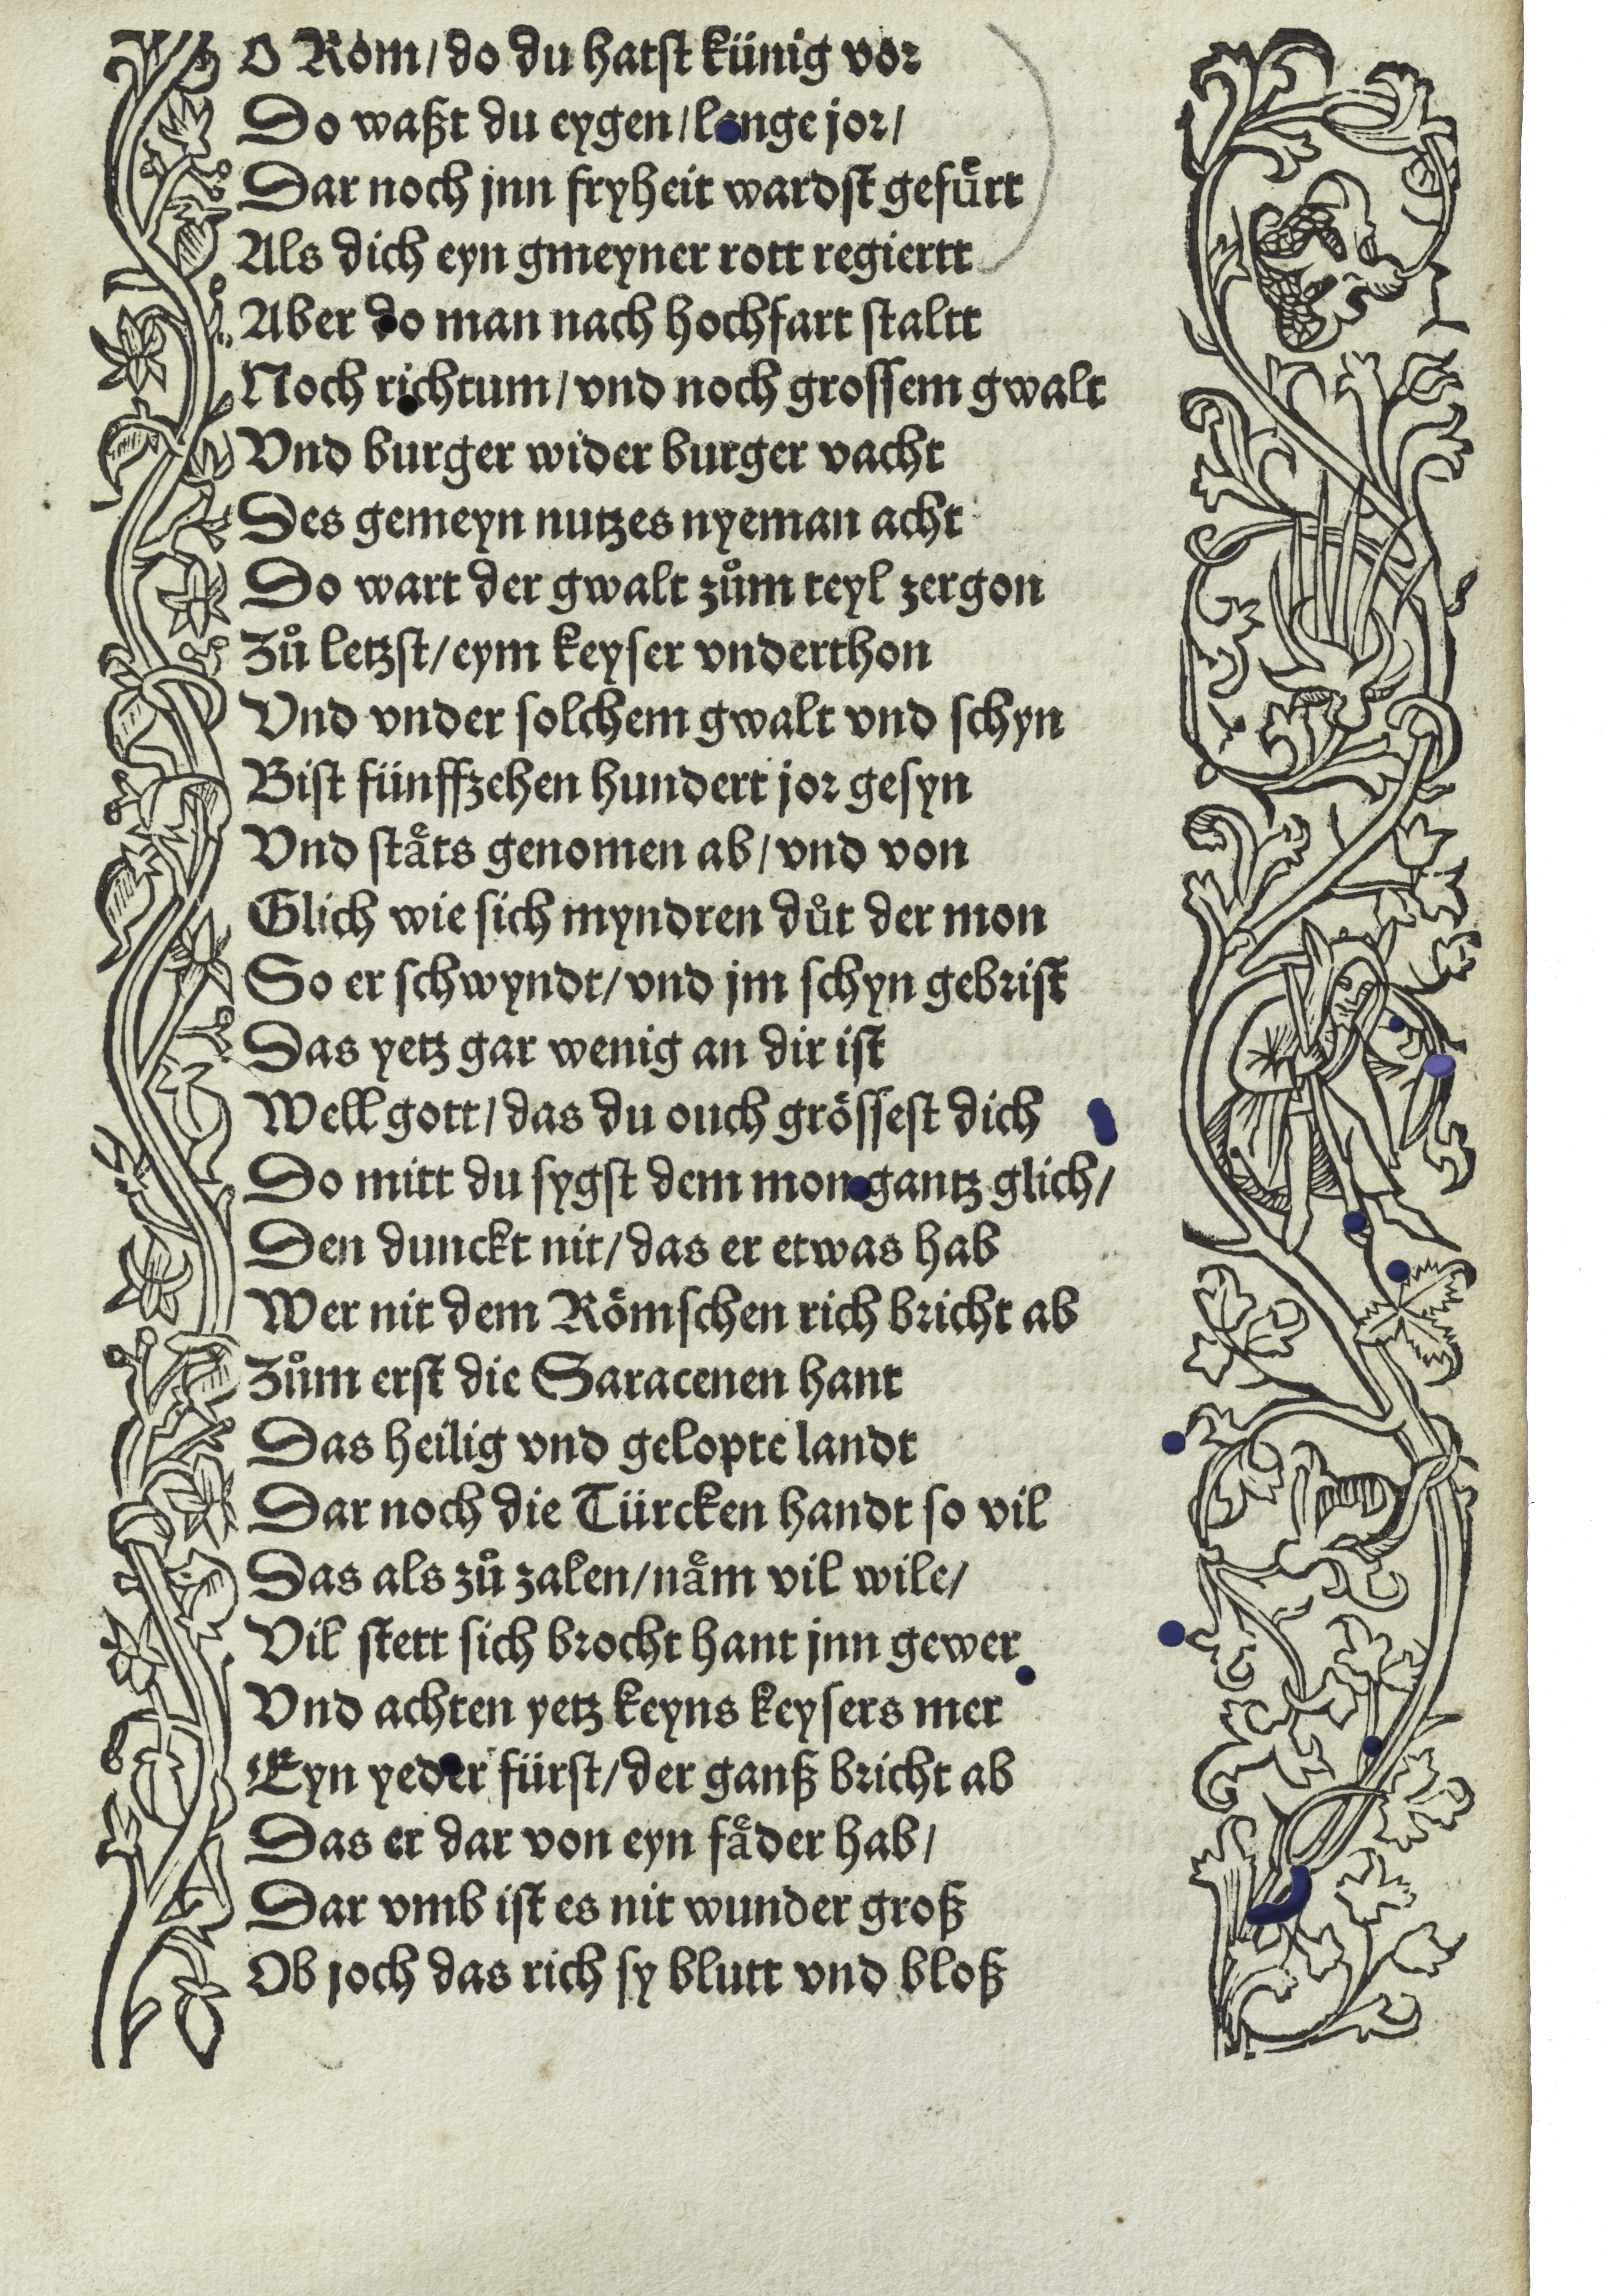 O Rom/do du hatst künig vor
Do waßt du eygen/lange jor/
Dar noch jnn fryheit wardst gefuͤrt
Als dich eyn gmeyner rott regiertt
Aber do man nach hochfart staltt
Noch richtum/vnd noch grossem gwalt
Vnd burger wider burger vacht
Des gemeyn nutzes nyeman acht
Do wart der gwalt zuͦm teyl zergon
Zuͦ letzst/eym keyser vnderthon
Vnd vnder solchem gwalt vnd schyn
Bist fünffzehen hundert jor gesyn
Vnd staͤts genomen ab/vnd von
Glich wie sich myndren duͦt der mon
So er schwyndt/vnd jm schyn gebrist
Das yetz gar wenig an dir ist
Well gott/das du ouch groͤssest dich
Do mitt du sygst dem mon gantz glich/
Den dunckt nit/das er etwas hab
Wer nit dem Roͤmschen rich bricht ab
Zuͦm erst die Saracenen hant
Das heilig vnd gelopte landt
Dar noch die Türcken handt so vil
Das als zuͦ zalen/naͤm vil wile/
Vil stett sich brocht hant jnn gewer
Vnd achten yetz keyns keysers mer
Eyn yeder fürst/der ganß bricht ab
Das er dar von eyn faͤder hab/
Dar vmb ist es nit wunder groß
Ob joch das rich sy blutt vnd bloß